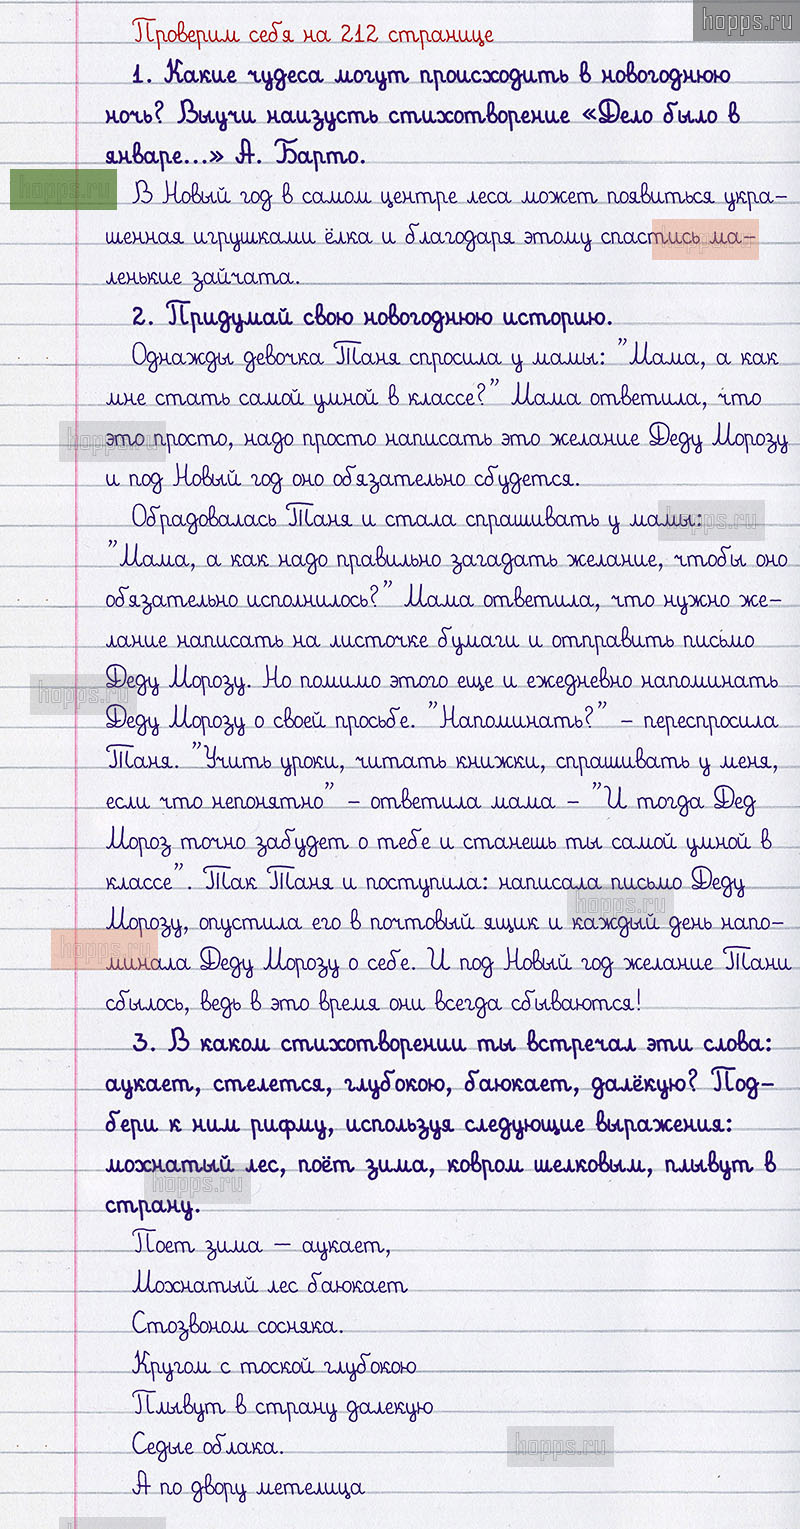 hopps.ru
Проверим себя на 212 странице
1. Какие чудеса могут происходить в новогоднюю
ночь? Выучи наизусть стихотворение «Дело было в
январе...» А. Барто.
hopps.ru
В Новый год в самом центре леса может появиться укра-
шенная игрушками ёлка и благодаря этому спастись ма-
ленькие зайчата.
2. Придумай свою новогоднюю историю.
Однажды девочка Таня спросила у мамы: "Мама, а как
мне стать самой умной в классе?" Мама ответила, что
это просто, надо просто написать это желание Деду Морозу
hopps.ru
и под Новый год оно обязательно сбудется.
Обрадовалась Таня и стала спрашивать у мамы:
hopps.ru
"Мама, а как надо правильно загадать желание, чтобы оно
обязательно исполнилось?" Мама ответила, что нужно же-
лание написать на листочке бумаги и отправить письмо
Деду Морозу. Но помимо этого еще и ежедневно напоминать
hopps.ru
Деду Морозу о своей просьбе. "Напоминать?" – переспросила
Таня. "Учить уроки, читать книжки, спрашивать у меня,
если что непонятно" – ответила мама – "И тогда Дед
Мороз точно забудет о тебе и станешь ты самой умной в
классе". Так Таня и поступила: написала письмо Деду
hopps.ru
Морозу, опустила его в почтовый ящик и каждый день напо-
минала Деду Морозу о себе. И под Новый год желание Тани
hopps.ru
сбылось, ведь в это время они всегда сбываются!
3. В каком стихотворении ты встречал эти слова:
аукает, стелется, глубокою, баюкает, далёкую? Под-
бери к ним рифму, используя следующие выражения:
мохнатый лес, поёт зима, ковром шелковым, плывут в
hopps.ru
страну.
Поет зима – аукает,
Мохнатый лес баюкает
Стозвоном сосняка.
Кругом с тоской глубокою
Плывут в страну далекую
Седые облака.
hopps.ru
А по двору метелица